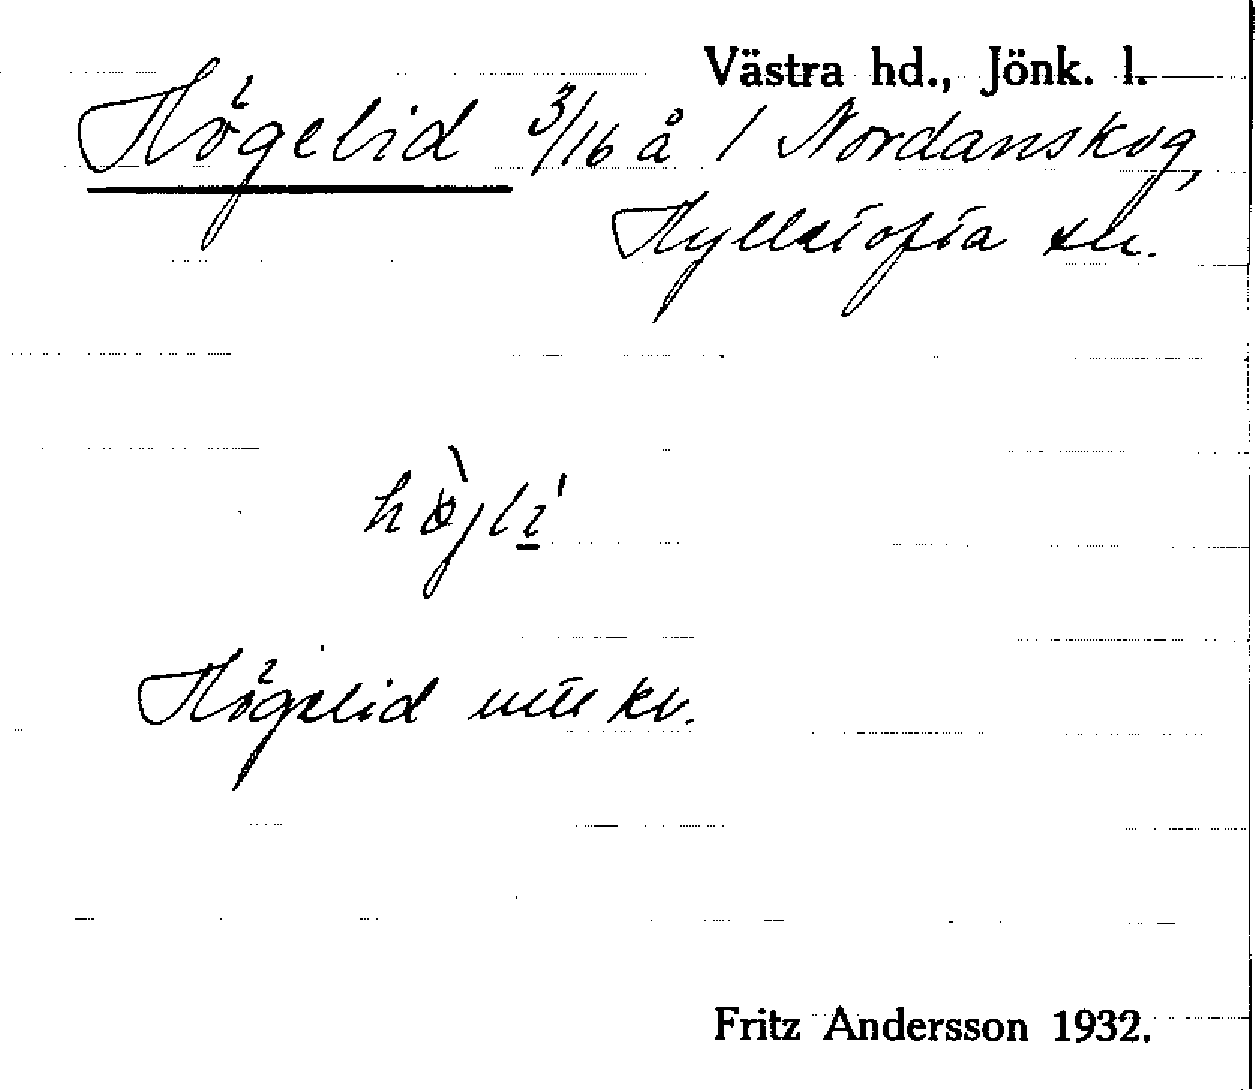 Västra hd., Jönk. l.
Högelid 3/16 å 1 Nordanskog,
Hylletofta sn.
hö̀jlí
Högelid uttl kv.
Fritz Andersson 1932.